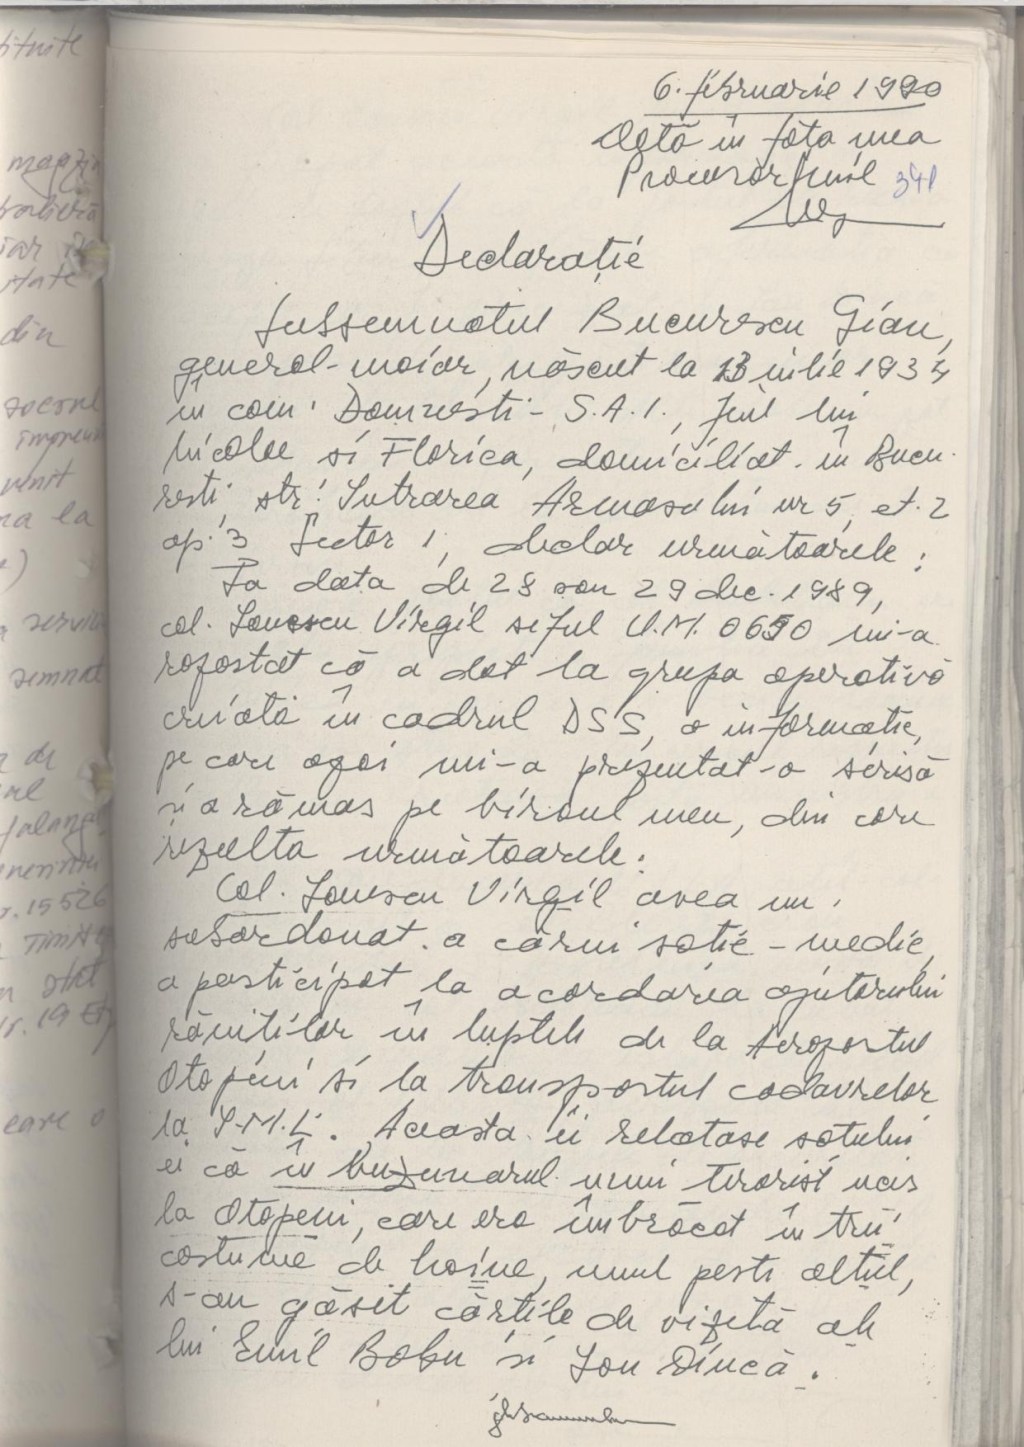 bituite
magazin
iar în
state
din
socrul
impreun
venit
na la
a)
a servic
semnat
a de
r. 15526
Timis
r. 19 Et
care o
6. februarie 1990
Dată în fața mea
Procuror
341
Declarație
Subsemnatul Bucurescu Gianu,
general-maior, născut la 13 iulie 1934
în com. Domnesti - S.A.I., fiul lui
Nicolae si Florica, domiciliat în Bucu-
resti, str. Intrarea Armasului nr 5, et. 2
ap. 3 Sector 1, declar următoarele:
In data de 28 sau 29 dec. 1989,
col. Ionescu Virgil seful U.M. 0650 mi-a
raportat că a dat la grupa operativă
creiată în cadrul DSS, o informație,
pe care apoi mi-a prezentat-o scrisă
si a rămas pe biroul meu, din care
rezulta următoarele.
Col. Ionescu Virgil avea un
subordonat a cărui sotie - medic,
a participat la acordarea ajutorului
răniților în luptele de la Aeroportul
Otopeni si la transportul cadavrelor
la I.M.L. Aceasta îi relatase sotului
ei că în buzunarul unui terorist ucis
la Otopeni, care era îmbrăcat în trei
costume de haine, unul peste altul,
s-au găsit cărțile de vizită ale
lui Emil Bobu si Ion Dincă.